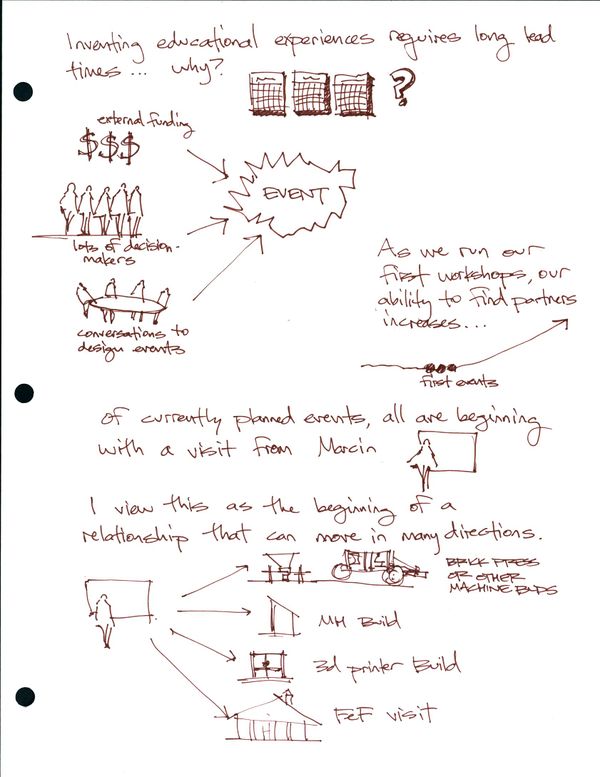 Inventing educational experiences requires long lead
times... why?
?
external funding
$$$
EVENT
lots of decision-
makers
conversations to
design events
As we run our
first workshops, our
ability to find partners
increases...
first events
of currently planned events, all are beginning
with a visit from Marcin
I view this as the beginning of a
relationship that can move in many directions.
BRICK PRESS
OR OTHER
MACHINE BUILDS
MH Build
3d printer Build
FeF visit